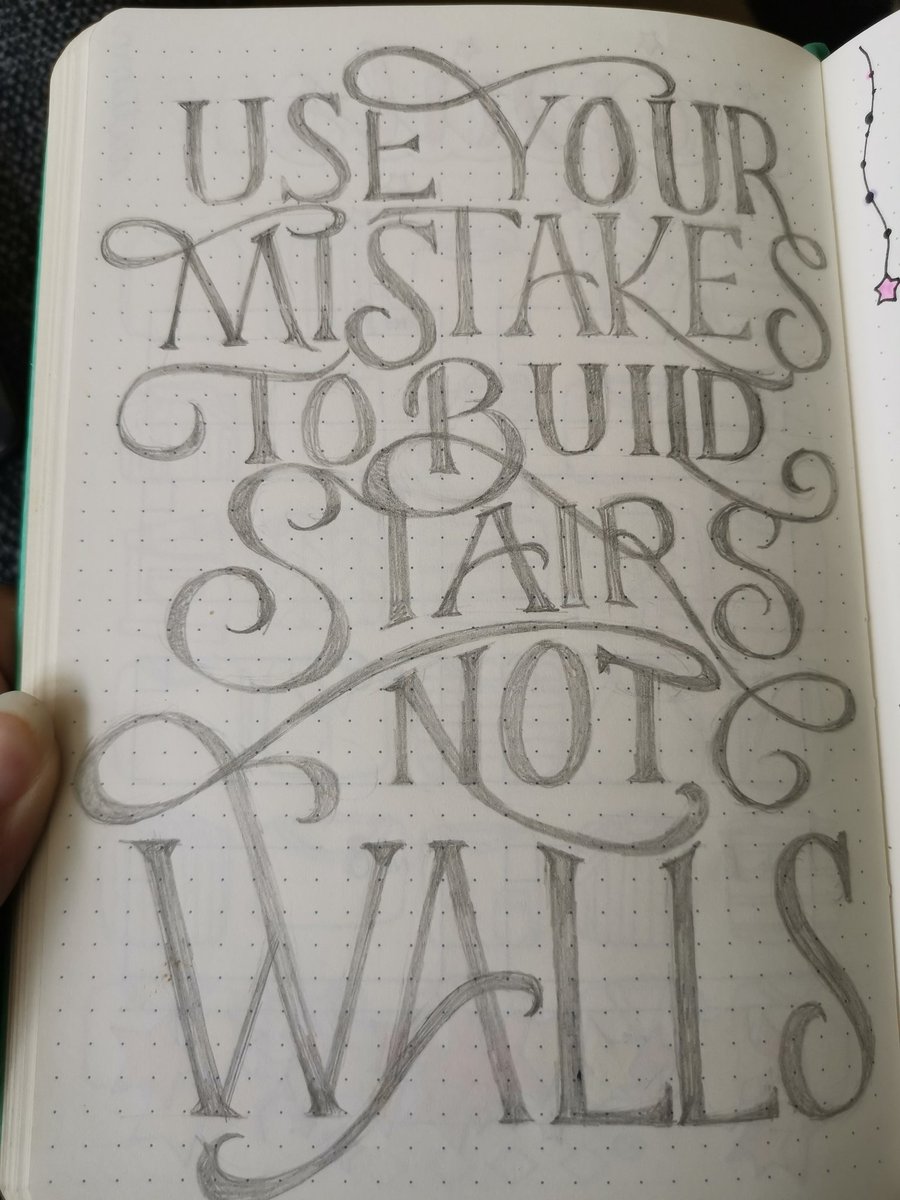 USE YOUR
MISTAKES
TO BUILD
STAIRS
NOT
WALLS